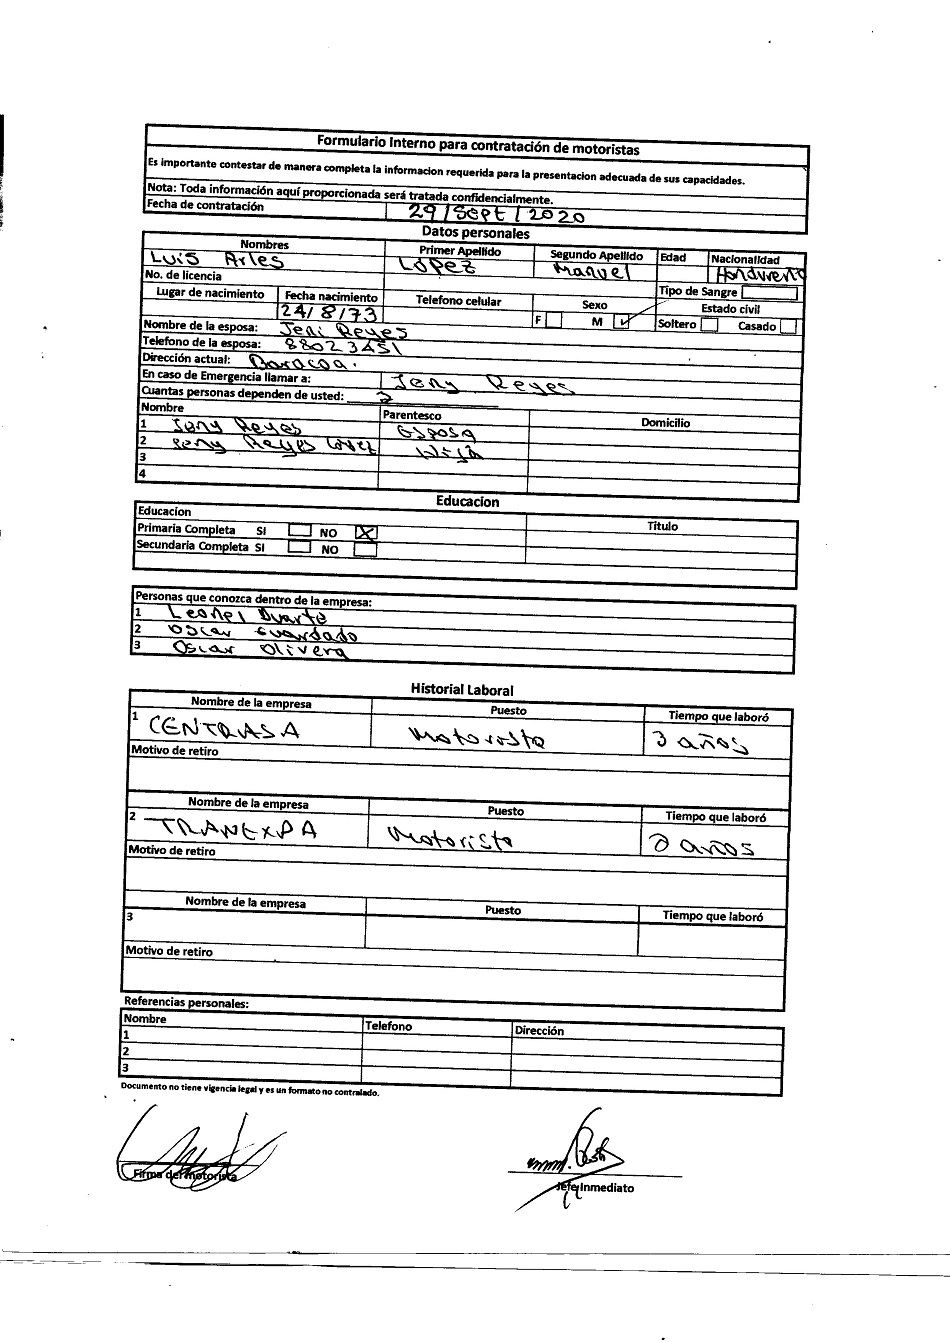 Formulario Interno para contratación de motoristas
Es importante contestar de manera completa la informacion requerida para la presentacion adecuada de sus capacidades.
Nota: Toda información aquí proporcionada será tratada confidencialmente.
Fecha de contratación 29/Sept/2020
Datos personales
Nombres Primer Apellido Segundo Apellido Edad Nacionalidad
Luis Arles López Manuel Hondureño
No. de licencia
Lugar de nacimiento Fecha nacimiento Telefono celular Sexo Tipo de Sangre
Estado civil
24/8/73 F M ✓ Soltero Casado
Nombre de la esposa: Jeni Reyes
Telefono de la esposa: 88023451
Dirección actual: Baracoa.
En caso de Emergencia llamar a: Jeny Reyes
Cuantas personas dependen de usted: 2
Nombre Parentesco Domicilio
1 Jeny Reyes Esposa
2 Jeny Reyes Hija
3
4
Educacion
Educacion Titulo
Primaria Completa SI NO X
Secundaria Completa SI NO
Personas que conozca dentro de la empresa:
1 Leonel Duarte
2 Oscar Guardado
3 Oscar Olivera
Historial Laboral
Nombre de la empresa Puesto Tiempo que laboró
1 CENTRASA Motorista 3 años
Motivo de retiro
Nombre de la empresa Puesto Tiempo que laboró
2 TRANEXPA Motorista años
Motivo de retiro
Nombre de la empresa Puesto Tiempo que laboró
3
Motivo de retiro
Referencias personales:
Nombre Telefono Dirección
1
2
3
Documento no tiene vigencia legal y es un formato no controlado.
Firma del motorista Jefe Inmediato